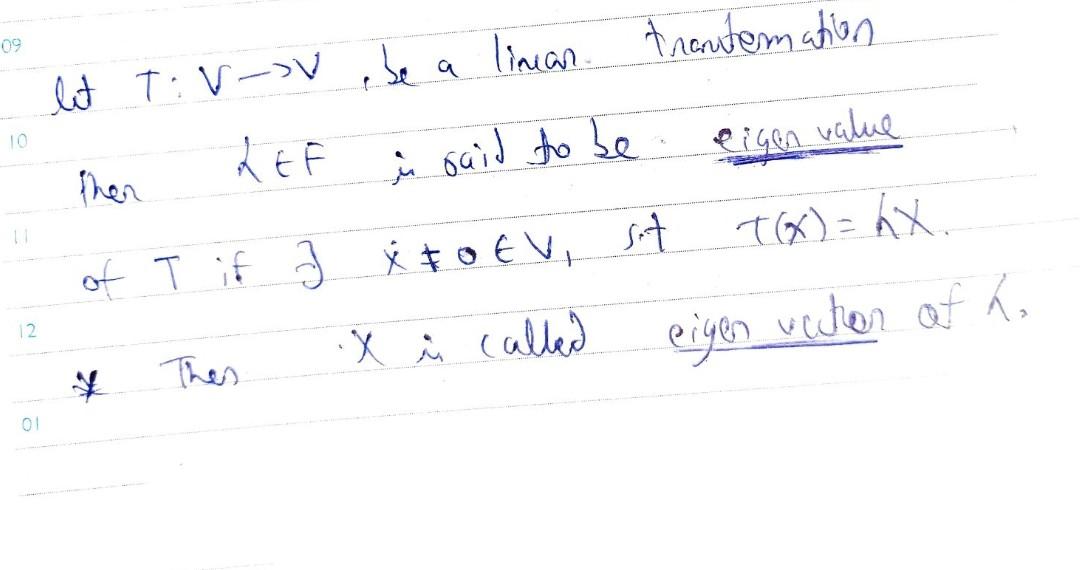 09
let T: V → V, be a linear transformation
10
Then λ ∈ F is said to be eigen value
11
of T if ∃ x ≠ 0 ∈ V, s.t T(x) = λx.
12
* Then x is called eigen vector of λ.
01